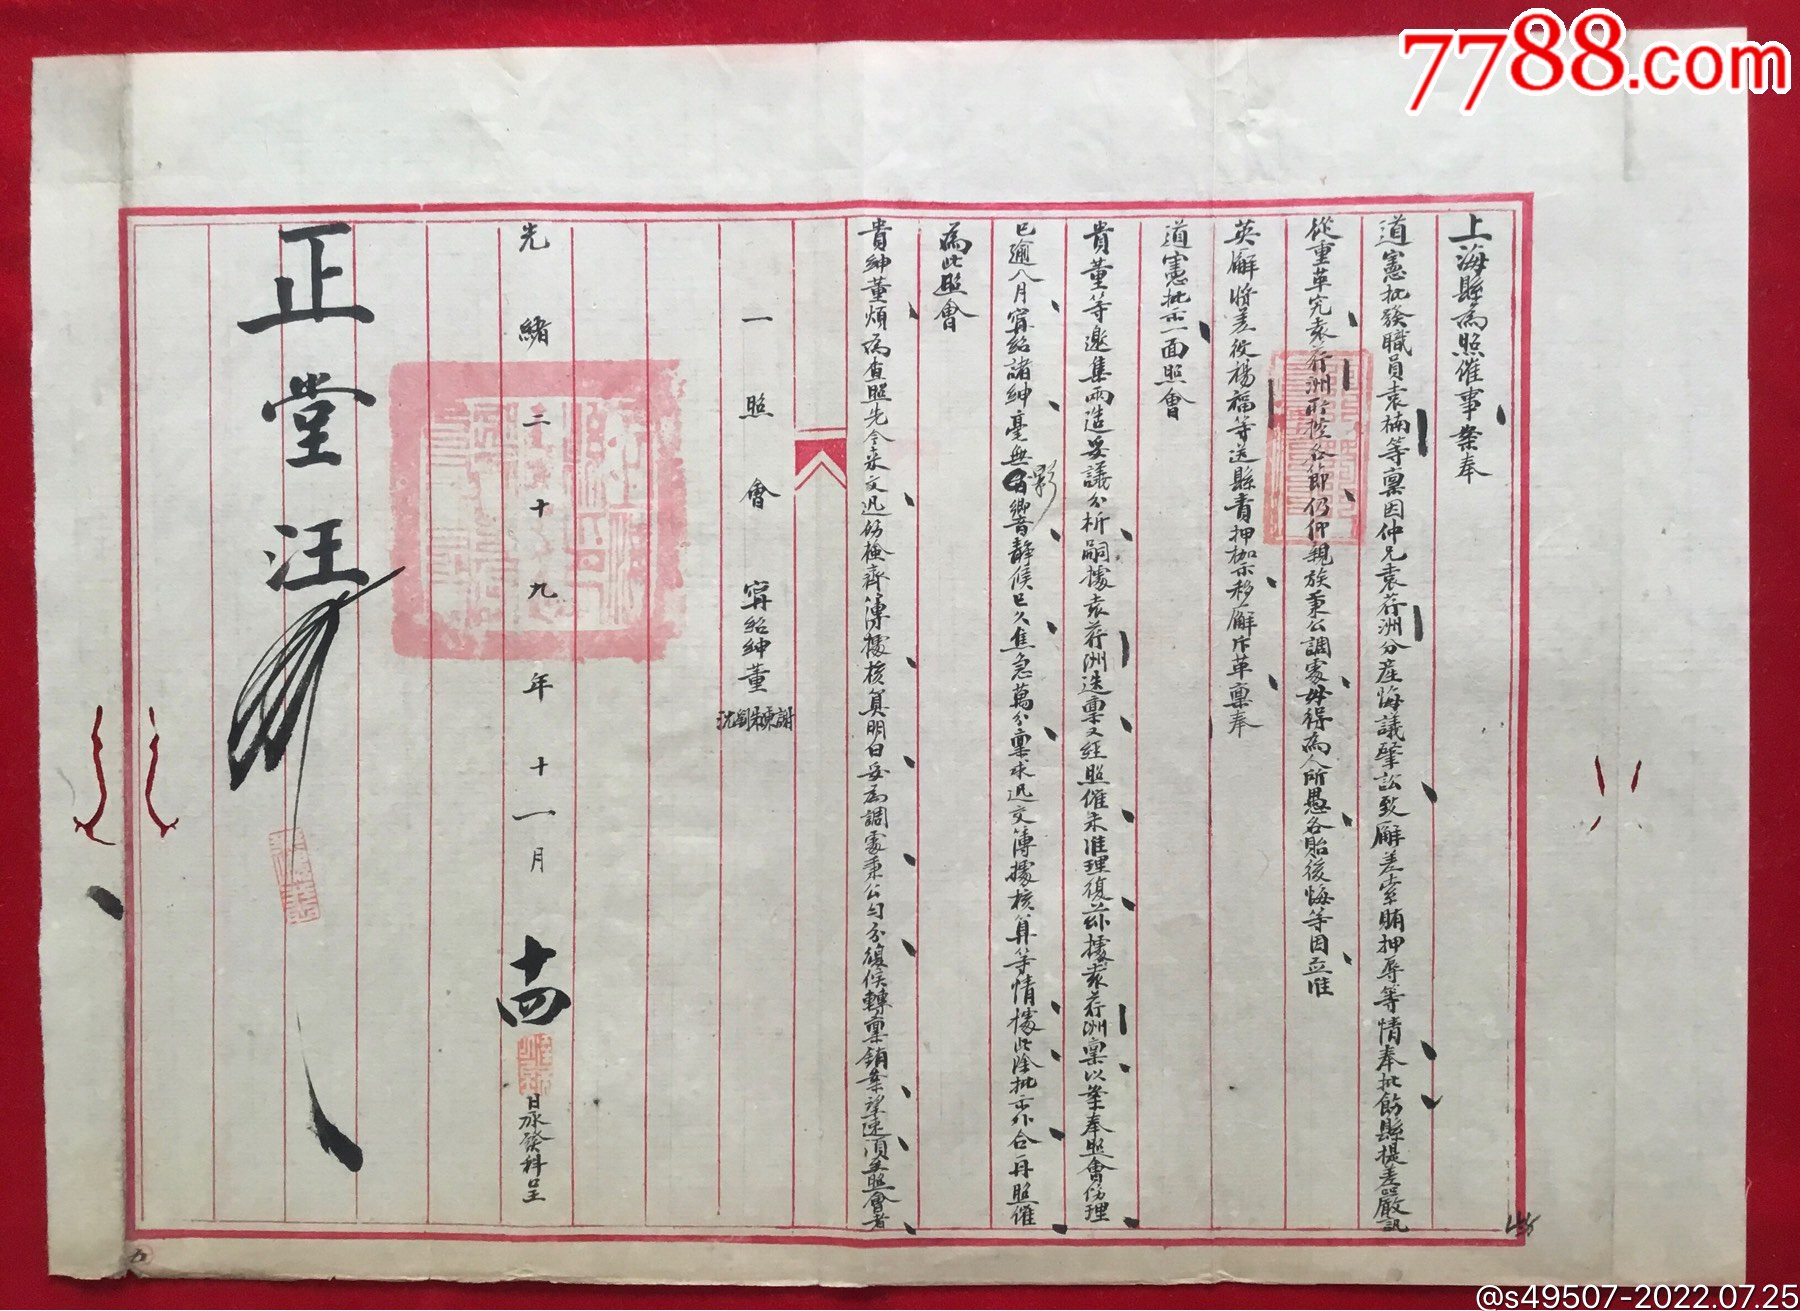 7788.com
上海縣為照催事案奉
道憲批發職員袁楠等稟因仲兄袁荇洲分產悔議肇訟致廨差索賄押辱等情奉批飭縣提差嚴訊
從重革究袁荇洲所控各節仍仰親族秉公調處毋得為人所愚各貽後悔等因並准
英廨將差役楊福等送縣責押枷示移廨斥革稟奉
道憲批示一面照會
貴董等邀集兩造妥議分析嗣據袁荇洲迭稟又經照催未准理復茲據袁荇洲稟以案奉照會份理
已逾八月甯紹諸紳毫無影響靜候已久焦急萬分稟求迅交簿據核算等情據此除批示外合再照催
為此照會
貴紳董煩為查照先今來文迅份檢齊簿據核算明白妥為調處秉公勻分復候轉稟銷案望速須至照會者
一照會 甯紹紳董 謝陳朱劉沈
光緒二十九年十一月十四日承發科呈
正堂汪
@s49507-2022.07.25